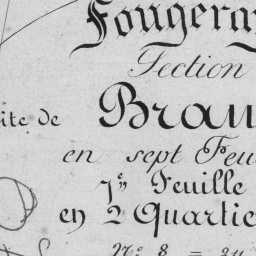 Fougeray
Section
ite de Brau
en sept Feu
7e Feuille
en 2 Quartie
No 8 =